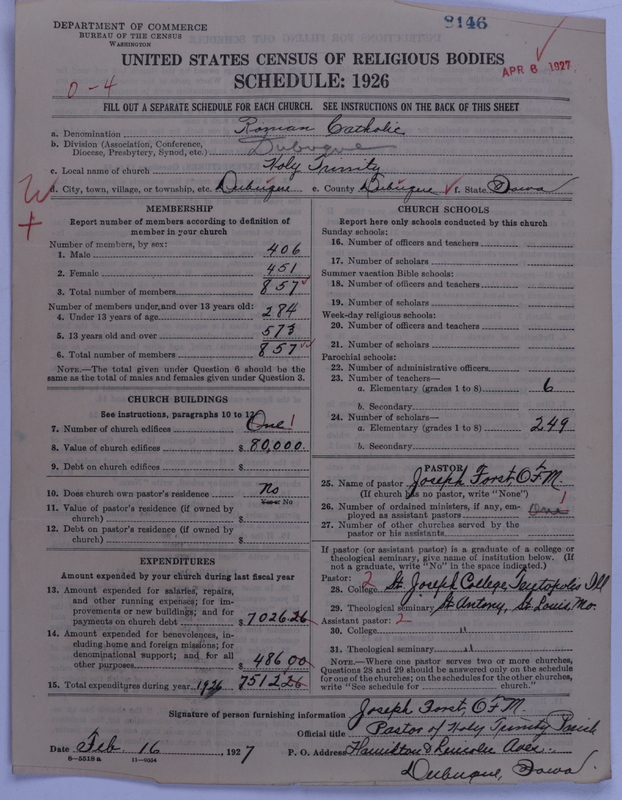 DEPARTMENT OF COMMERCE
BUREAU OF THE CENSUS
WASHINGTON
9146
APR 6 1927
UNITED STATES CENSUS OF RELIGIOUS BODIES
SCHEDULE: 1926
0-4
FILL OUT A SEPARATE SCHEDULE FOR EACH CHURCH. SEE INSTRUCTIONS ON THE BACK OF THIS SHEET
a. Denomination Roman Catholic
b. Division (Association, Conference, Diocese, Presbytery, Synod, etc.) Dubuque
c. Local name of church Holy Trinity
d. City, town, village, or township, etc. Dubuque e. County Dubuque f. State Iowa
MEMBERSHIP
Report number of members according to definition of
member in your church
Number of members, by sex:
1. Male 406
2. Female 451
3. Total number of members 857
Number of members under, and over 13 years old:
4. Under 13 years of age 284
5. 13 years old and over 573
6. Total number of members 857
NOTE.—The total given under Question 6 should be
same as the total of males and females given under Question 3.
CHURCH BUILDINGS
See instructions, paragraphs 10 to 12
7. Number of church edifices One 1
8. Value of church edifices $ 80,000.
9. Debt on church edifices $
10. Does church own pastor's residence No
Yes or No
11. Value of pastor's residence (if owned by
church) $
12. Debt on pastor's residence (if owned by
church) $
EXPENDITURES
Amount expended by your church during last fiscal year
13. Amount expended for salaries, repairs,
and other running expenses; for im-
provements or new buildings; and for
payments on church debt $ 7026.26
14. Amount expended for benevolences, in-
cluding home and foreign missions; for
denominational support; and for all
other purposes $ 486 00
15. Total expenditures during year 1926 7512 26
CHURCH SCHOOLS
Report here only schools conducted by this church
Sunday schools:
16. Number of officers and teachers
17. Number of scholars
Summer vacation Bible schools:
18. Number of officers and teachers
19. Number of scholars
Week-day religious schools:
20. Number of officers and teachers
21. Number of scholars
Parochial schools:
22. Number of administrative officers
23. Number of teachers—
a. Elementary (grades 1 to 8) 6
b. Secondary
24. Number of scholars—
a. Elementary (grades 1 to 8) 249
b. Secondary
PASTOR
25. Name of pastor Joseph Forst, O.F.M.
(If church has no pastor, write "None")
26. Number of ordained ministers, if any, em-
ployed as assistant pastors One 1
27. Number of other churches served by the
pastor or his assistants
If pastor (or assistant pastor) is a graduate of a college or
theological seminary, give name of institution below. (If
not a graduate, write "No" in the space indicated.)
Pastor: 2
28. College St. Joseph College, Teutopolis Ill
29. Theological seminary St. Antony, St. Louis, Mo.
Assistant pastor: 2
30. College "
31. Theological seminary "
NOTE.—Where one pastor serves two or more churches,
Questions 28 and 29 should be answered only on the schedule
for one of the churches; on the schedules for the other churches,
write "See schedule for church."
Signature of person furnishing information Joseph Forst, O.F.M.
Official title Pastor of Holy Trinity Parish
Date Feb. 16, 1927 P. O. Address Hamilton & Lincoln Aves.
8—5518a 11—9354
Dubuque, Iowa.